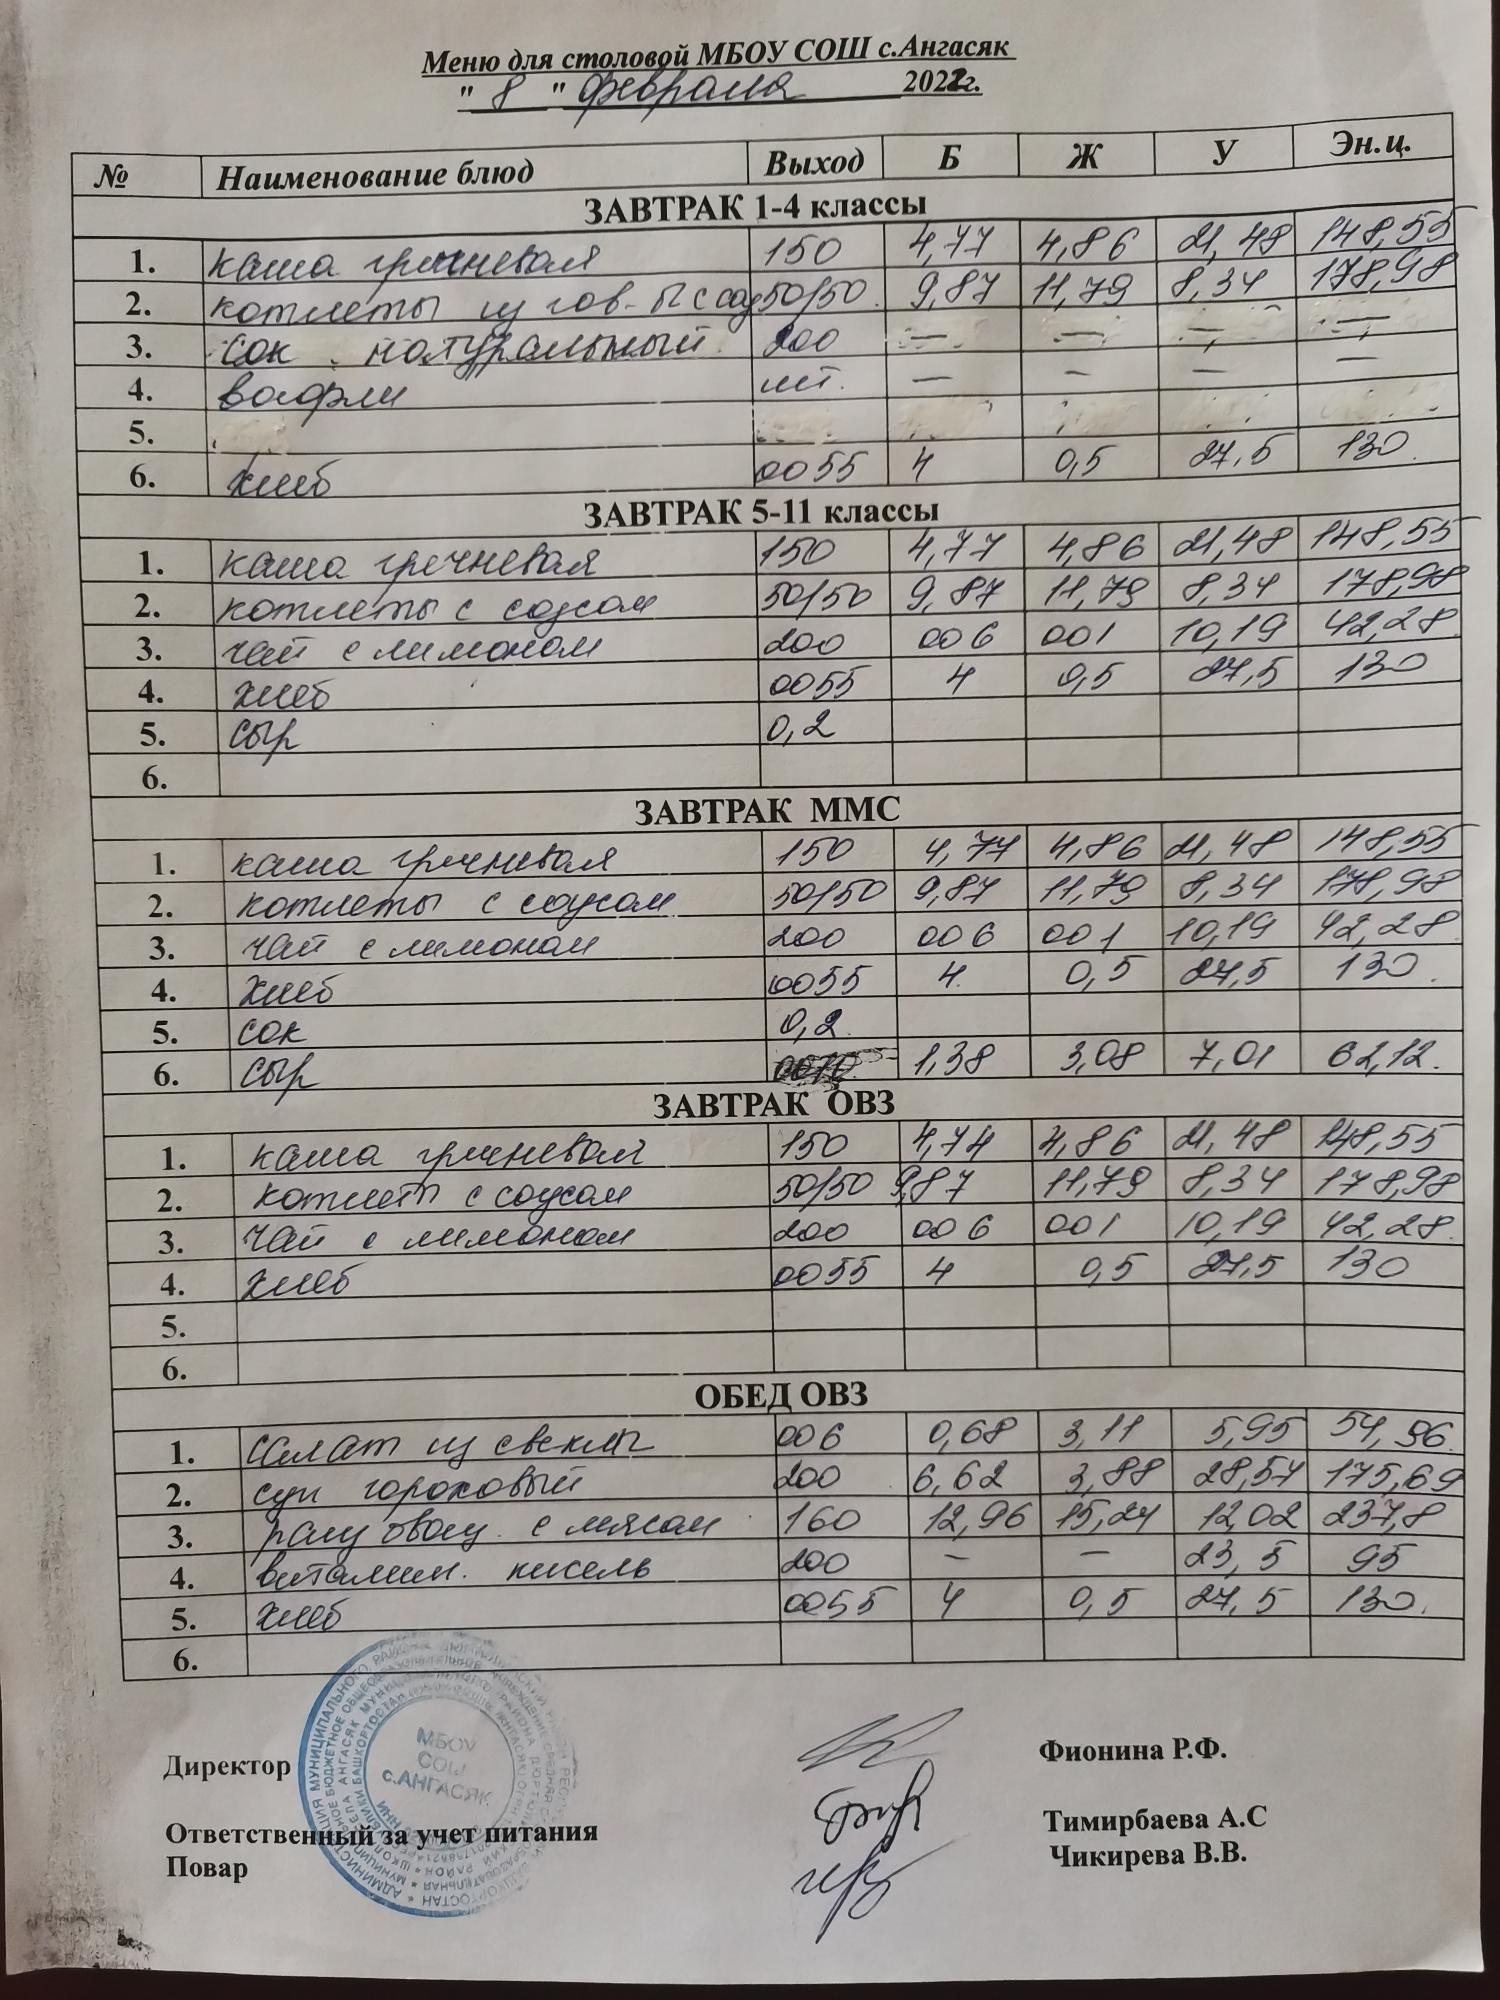 Меню для столовой МБОУ СОШ с.Ангасяк
" 8 " февраля 2022г.
№ Наименование блюд Выход Б Ж У Эн.ц.
ЗАВТРАК 1-4 классы
1. каша гречневая 150 4,77 4,86 21,48 148,55
2. котлеты из гов-ы с соу 50/50 9,87 11,79 8,34 178,98
3. сок натуральный 200 — — — —
4. вафли шт. — — — —
5.
6. хлеб 0055 4 0,5 27,5 130
ЗАВТРАК 5-11 классы
1. каша гречневая 150 4,77 4,86 21,48 148,55
2. котлеты с соусом 50/50 9,87 11,79 8,34 178,98
3. чай с лимоном 200 006 001 10,19 42,28
4. хлеб 0055 4 0,5 27,5 130
5. сыр 0,2
6.
ЗАВТРАК ММС
1. каша гречневая 150 4,77 4,86 21,48 148,55
2. котлеты с соусом 50/50 9,87 11,79 8,34 178,98
3. чай с лимоном 200 006 001 10,19 42,28
4. хлеб 0055 4 0,5 27,5 130
5. сок 0,2
6. сыр 0010 1,38 3,08 7,01 62,12
ЗАВТРАК ОВЗ
1. каша гречневая 150 4,74 4,86 21,48 148,55
2. котлеты с соусом 50/50 9,87 11,79 8,34 178,98
3. чай с лимоном 200 006 001 10,19 42,28
4. хлеб 0055 4 0,5 27,5 130
5.
6.
ОБЕД ОВЗ
1. салат из свеклы 006 0,68 3,11 5,95 54,96
2. суп гороховый 200 6,62 3,88 28,57 175,69
3. рагу овощ. с мясом 160 12,96 15,24 12,02 237,8
4. витамин. кисель 200 — — 23,5 95
5. хлеб 0055 4 0,5 27,5 130
6.
МБОУ
СОШ
с.АНГАСЯК
Директор Фионина Р.Ф.
Ответственный за учет питания Тимирбаева А.С
Повар Чикирева В.В.